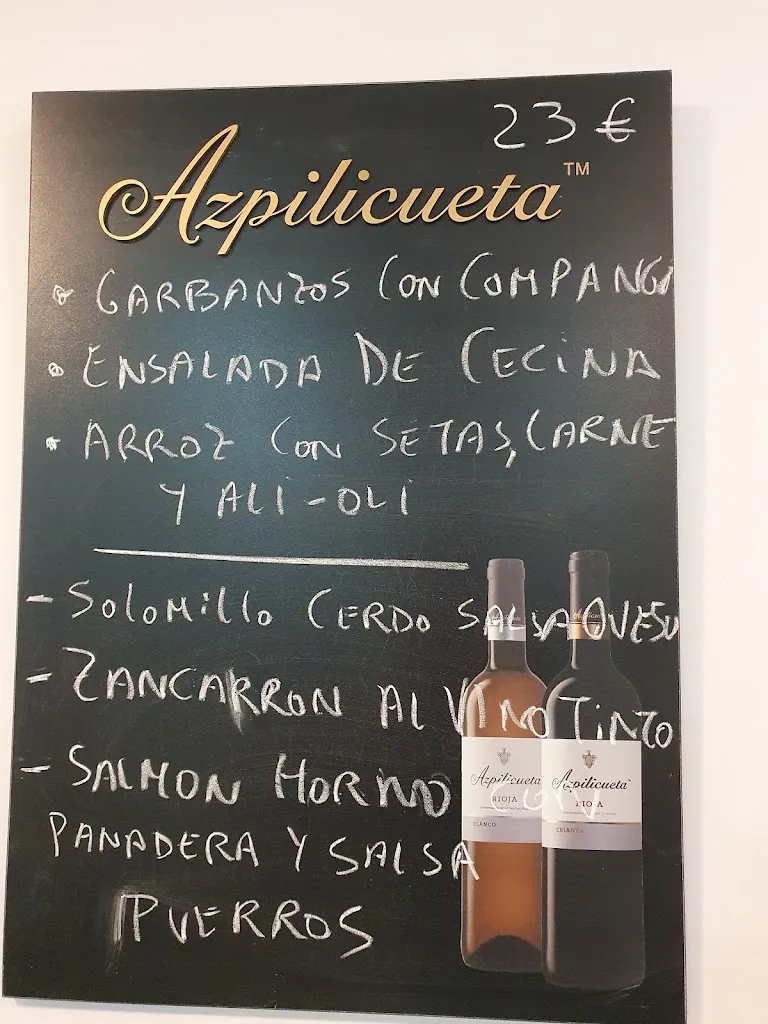 23 €
Azpilicueta™
• GARBANZOS CON COMPANG
• ENSALADA DE CECINA
• ARROZ CON SETAS, CARNE
Y ALI-OLI
- SOLOMILLO CERDO SALSA QUESO
- ZANCARRON AL VINO TINTO
- SALMON HORNO CON
PANADERA Y SALSA
PUERROS
Azpilicueta
RIOJA
BLANCO
Azpilicueta
RIOJA
CRIANZA